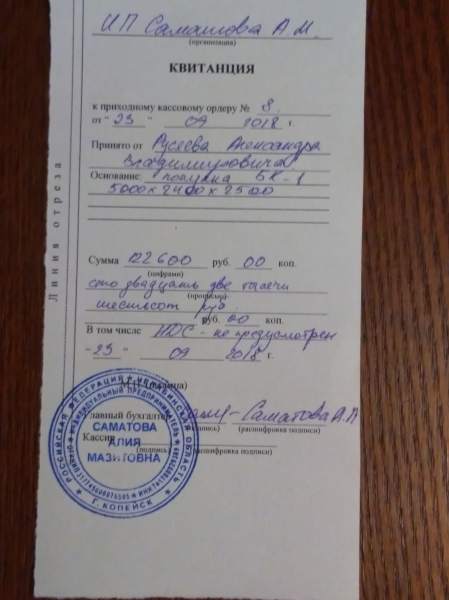 ИП Саматова А.М.
(организация)
КВИТАНЦИЯ
Линия отреза
к приходному кассовому ордеру № 8
от "23" 09 2018 г.
Принято от Русеева Александра
Владимировича
Основание: покупка БК-1
5000х2400х2500
Сумма 122600 руб. 00 коп.
(цифрами)
сто двадцать две тысячи
(прописью)
шестьсот руб.
руб. 00 коп.
В том числе НДС - не предусмотрен
"23" 09 2018 г.
Главный бухгалтер Саматова А.М
(подпись) (расшифровка подписи)
Кассир
(подпись) (расшифровка подписи)
РОССИЙСКАЯ ФЕДЕРАЦИЯ ЧЕЛЯБИНСКАЯ ОБЛАСТЬ
ИНДИВИДУАЛЬНЫЙ ПРЕДПРИНИМАТЕЛЬ
САМАТОВА
АЛИЯ
МАЗИТОВНА
Г. КОПЕЙСК